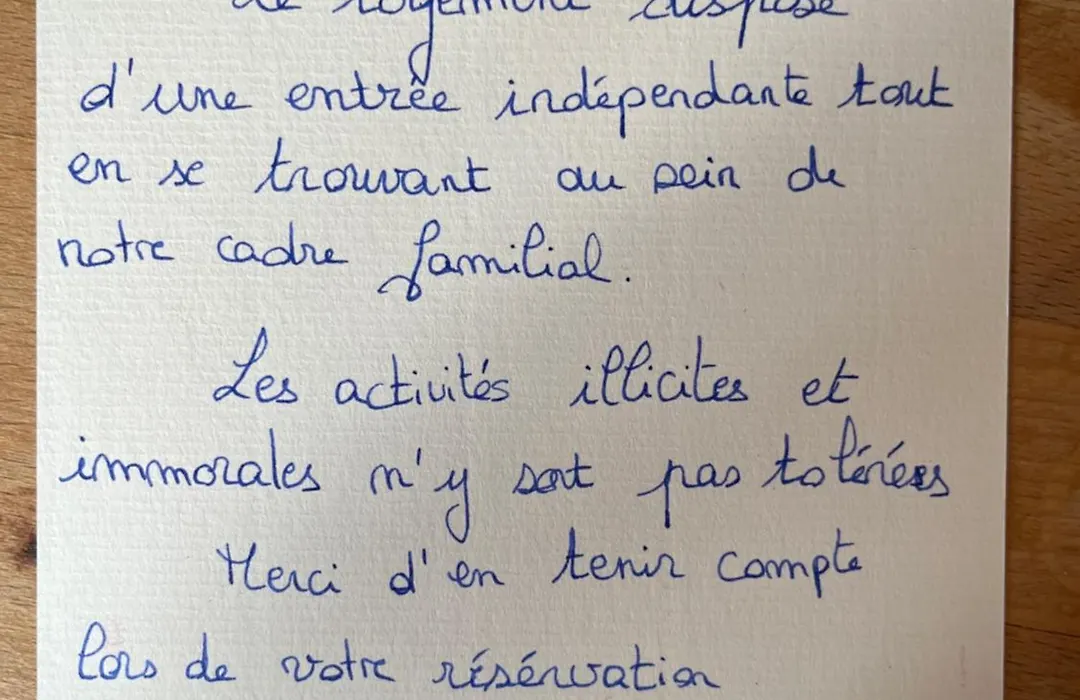 Le logement dispose
d'une entrée indépendante tout
en se trouvant au sein de
notre cadre familial.
Les activités illicites et
immorales n'y sont pas tolérées
Merci d'en tenir compte
lors de votre réservation